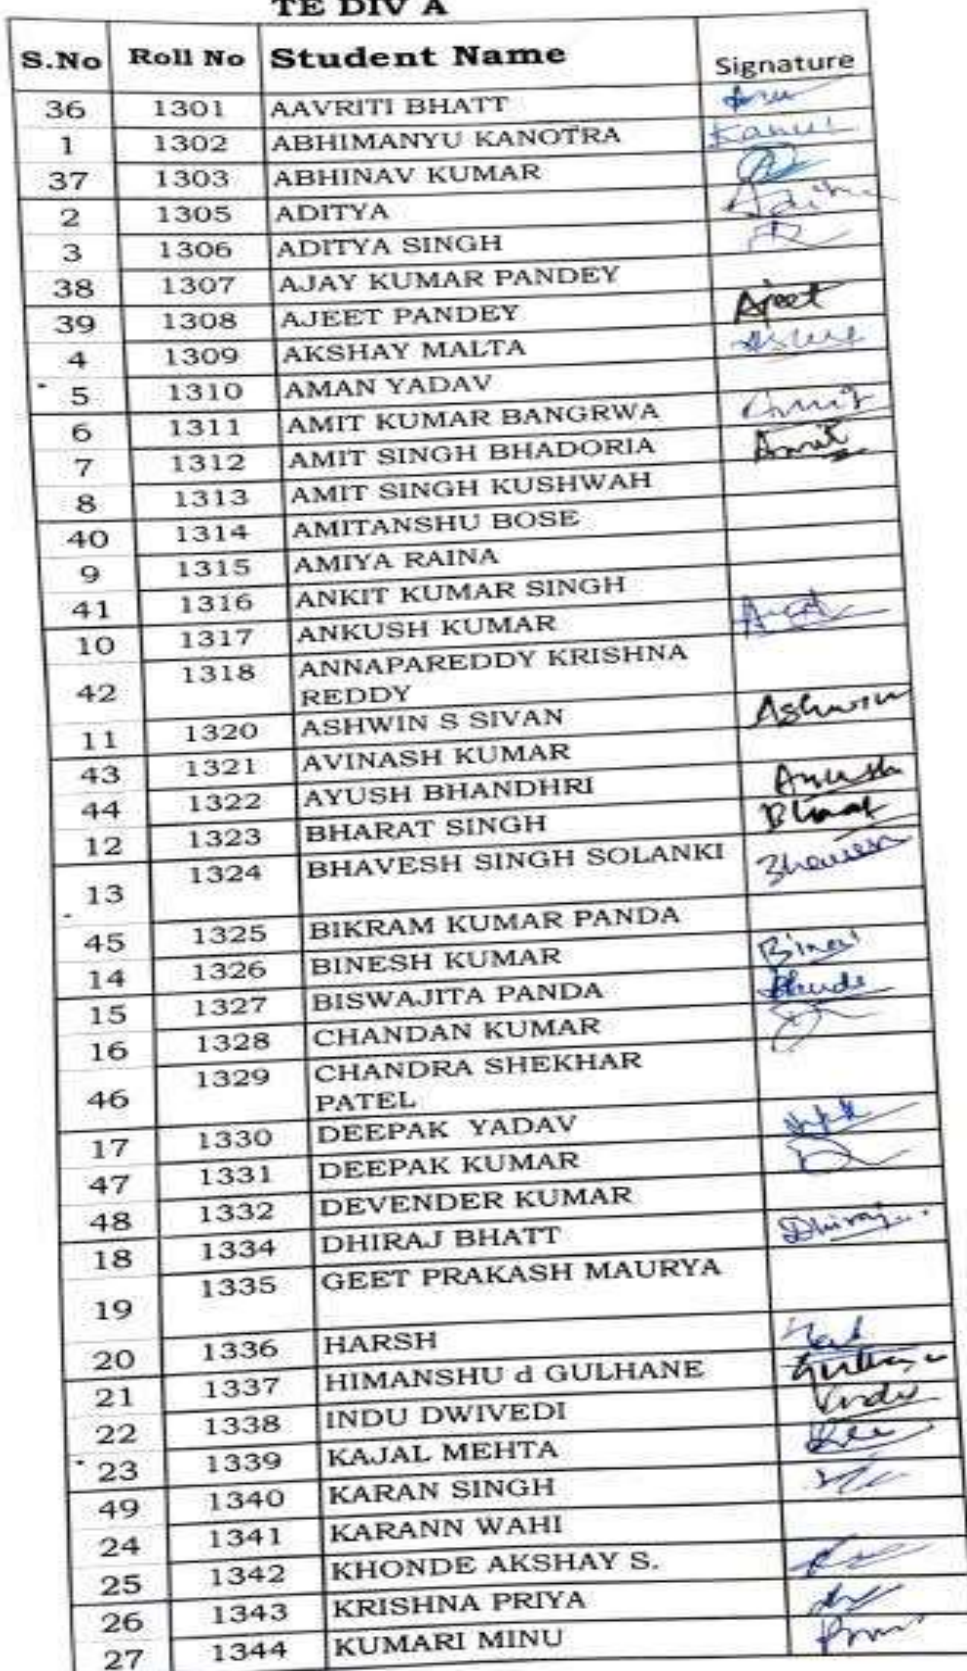 TE DIV A
S.No Roll No Student Name Signature
36 1301 AAVRITI BHATT
1 1302 ABHIMANYU KANOTRA
37 1303 ABHINAV KUMAR
2 1305 ADITYA
3 1306 ADITYA SINGH
38 1307 AJAY KUMAR PANDEY
39 1308 AJEET PANDEY Ajeet
4 1309 AKSHAY MALTA
5 1310 AMAN YADAV
6 1311 AMIT KUMAR BANGRWA Amit
7 1312 AMIT SINGH BHADORIA Amit
8 1313 AMIT SINGH KUSHWAH
40 1314 AMITANSHU BOSE
9 1315 AMIYA RAINA
41 1316 ANKIT KUMAR SINGH
10 1317 ANKUSH KUMAR
42 1318 ANNAPAREDDY KRISHNA
REDDY
11 1320 ASHWIN S SIVAN Ashwin
43 1321 AVINASH KUMAR
44 1322 AYUSH BHANDHRI
12 1323 BHARAT SINGH Bharat
13 1324 BHAVESH SINGH SOLANKI
45 1325 BIKRAM KUMAR PANDA
14 1326 BINESH KUMAR
15 1327 BISWAJITA PANDA
16 1328 CHANDAN KUMAR
46 1329 CHANDRA SHEKHAR
PATEL
17 1330 DEEPAK YADAV
47 1331 DEEPAK KUMAR
48 1332 DEVENDER KUMAR
18 1334 DHIRAJ BHATT Dhiraj
19 1335 GEET PRAKASH MAURYA
20 1336 HARSH
21 1337 HIMANSHU d GULHANE
22 1338 INDU DWIVEDI
23 1339 KAJAL MEHTA
49 1340 KARAN SINGH
24 1341 KARANN WAHI
25 1342 KHONDE AKSHAY S.
26 1343 KRISHNA PRIYA
27 1344 KUMARI MINU